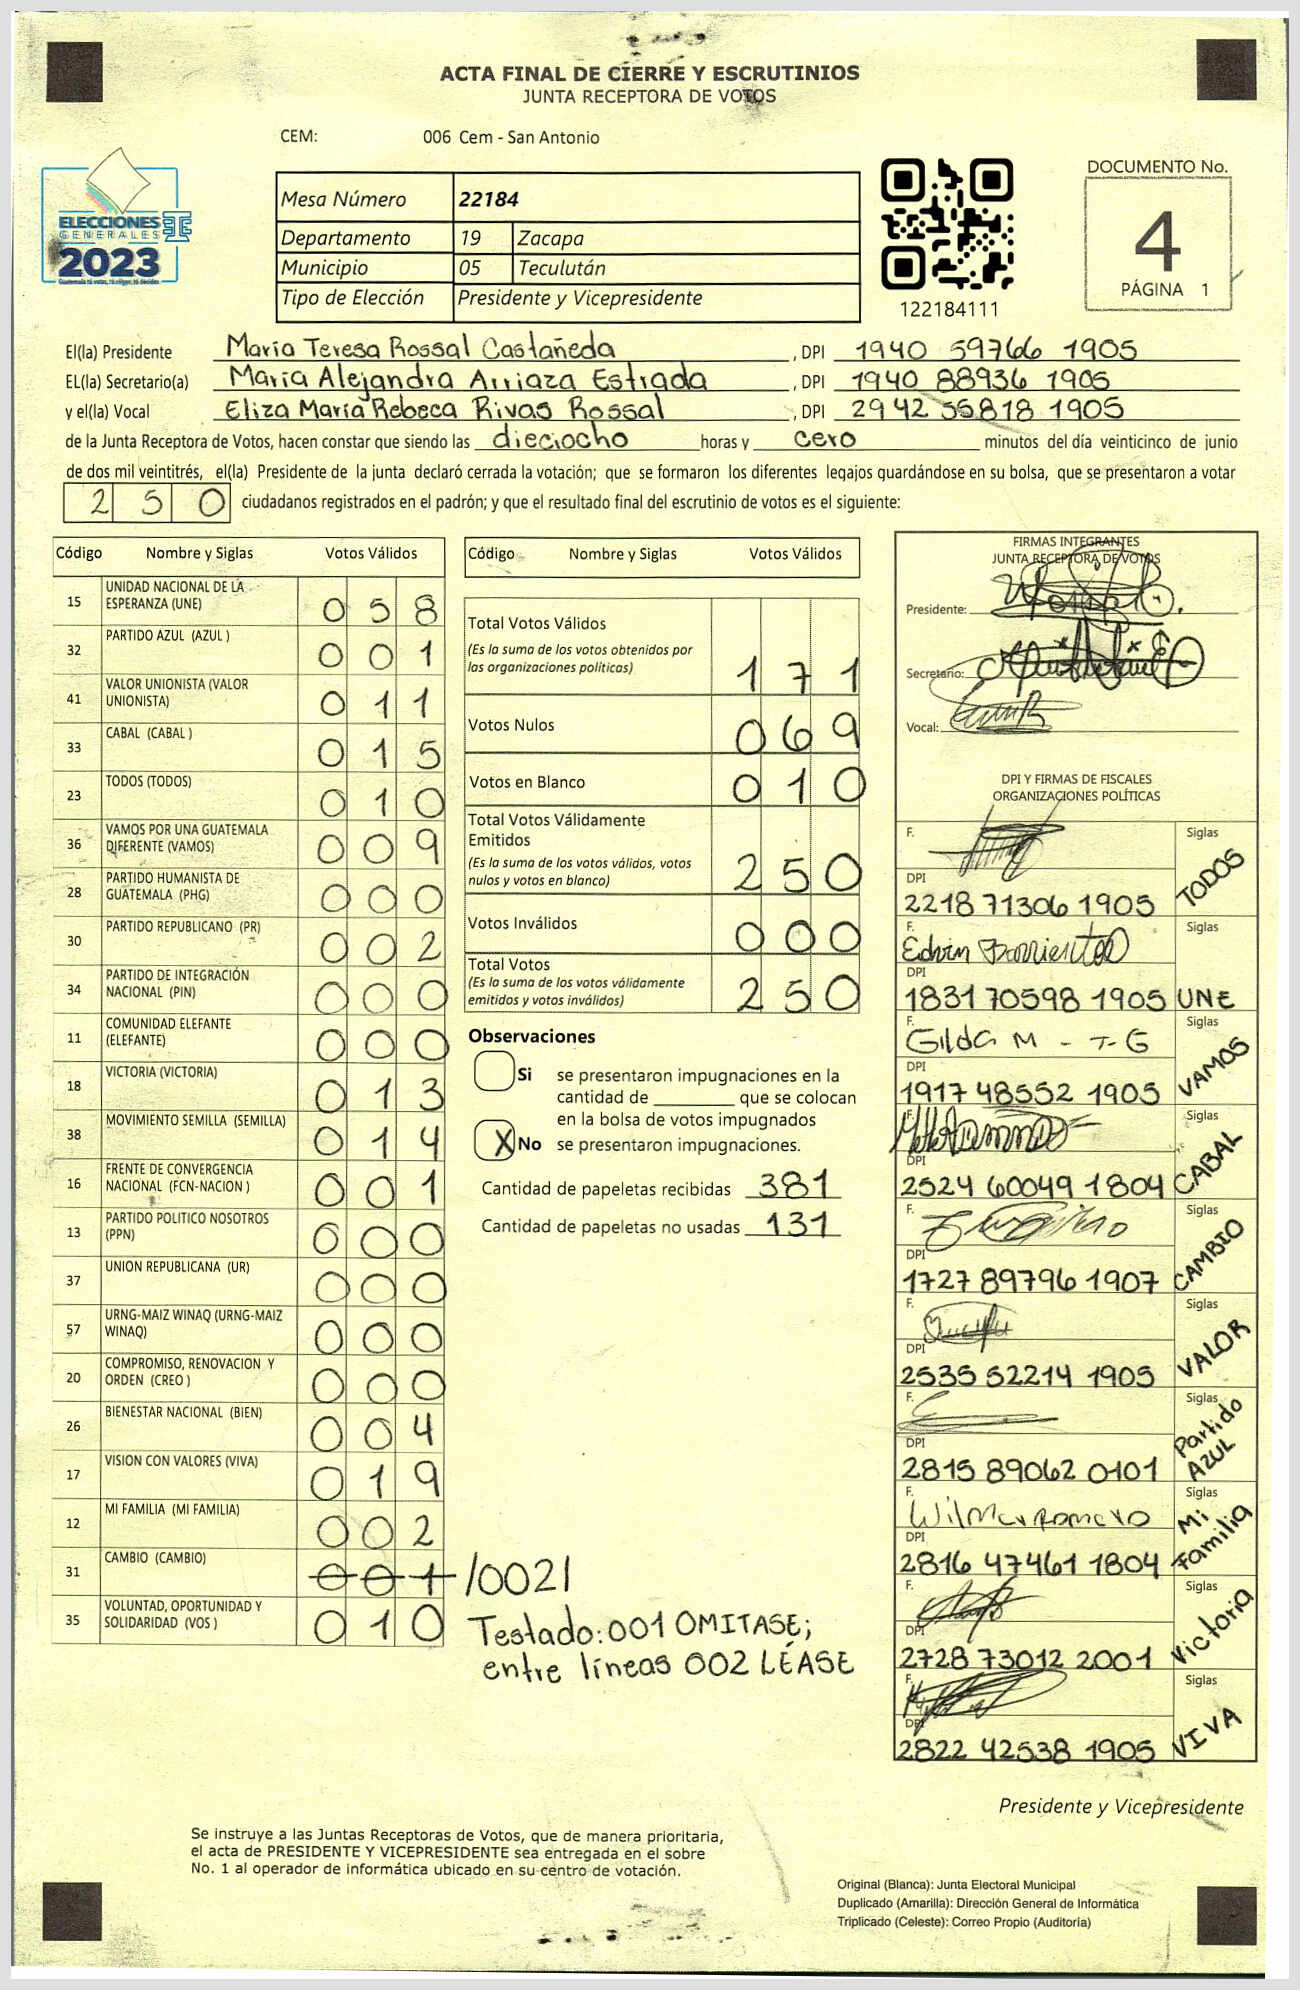 ACTA FINAL DE CIERRE Y ESCRUTINIOS
JUNTA RECEPTORA DE VOTOS
CEM: 006 Cem - San Antonio
ELECCIONES
GENERALES
2023
Mesa Número 22184
Departamento 19 Zacapa
Municipio 05 Teculután
Tipo de Elección Presidente y Vicepresidente
122184111
DOCUMENTO No.
4
PÁGINA 1
El(la) Presidente María Teresa Rossal Castañeda , DPI 1940 59766 1905
EL(la) Secretario(a) María Alejandra Arriaza Estrada , DPI 1940 88936 1905
y el(la) Vocal Eliza María Rebeca Rivas Rossal , DPI 2942 55818 1905
de la Junta Receptora de Votos, hacen constar que siendo las dieciocho horas y cero minutos del día veinticinco de junio
de dos mil veintitrés, el(la) Presidente de la junta declaró cerrada la votación; que se formaron los diferentes legajos guardándose en su bolsa, que se presentaron a votar
250 ciudadanos registrados en el padrón; y que el resultado final del escrutinio de votos es el siguiente:
Código Nombre y Siglas Votos Válidos
15 UNIDAD NACIONAL DE LA ESPERANZA (UNE) 058
32 PARTIDO AZUL (AZUL ) 001
41 VALOR UNIONISTA (VALOR UNIONISTA) 011
33 CABAL (CABAL ) 015
23 TODOS (TODOS) 010
36 VAMOS POR UNA GUATEMALA DIFERENTE (VAMOS) 009
28 PARTIDO HUMANISTA DE GUATEMALA (PHG) 000
30 PARTIDO REPUBLICANO (PR) 002
34 PARTIDO DE INTEGRACIÓN NACIONAL (PIN) 000
11 COMUNIDAD ELEFANTE (ELEFANTE) 000
18 VICTORIA (VICTORIA) 013
38 MOVIMIENTO SEMILLA (SEMILLA) 014
16 FRENTE DE CONVERGENCIA NACIONAL (FCN-NACION ) 001
13 PARTIDO POLITICO NOSOTROS (PPN) 000
37 UNION REPUBLICANA (UR) 000
57 URNG-MAIZ WINAQ (URNG-MAIZ WINAQ) 000
20 COMPROMISO, RENOVACION Y ORDEN (CREO ) 000
26 BIENESTAR NACIONAL (BIEN) 004
17 VISION CON VALORES (VIVA) 019
12 MI FAMILIA (MI FAMILIA) 002
31 CAMBIO (CAMBIO) 001 /002/
35 VOLUNTAD, OPORTUNIDAD Y SOLIDARIDAD (VOS ) 010
Testado: 001 OMITASE;
entre líneas 002 LÉASE
Código Nombre y Siglas Votos Válidos
Total Votos Válidos
(Es la suma de los votos obtenidos por
las organizaciones políticas) 171
Votos Nulos 069
Votos en Blanco 010
Total Votos Válidamente
Emitidos
(Es la suma de los votos válidos, votos
nulos y votos en blanco) 250
Votos Inválidos 000
Total Votos
(Es la suma de los votos válidamente
emitidos y votos inválidos) 250
Observaciones
Si se presentaron impugnaciones en la
cantidad de ________ que se colocan
en la bolsa de votos impugnados
X No se presentaron impugnaciones.
Cantidad de papeletas recibidas 381
Cantidad de papeletas no usadas 131
FIRMAS INTEGRANTES
JUNTA RECEPTORA DE VOTOS
Presidente:
Secretario:
Vocal:
DPI Y FIRMAS DE FISCALES
ORGANIZACIONES POLÍTICAS
F. Siglas
DPI
2218 71306 1905 TODOS
F. Edvin Barrientos Siglas
DPI
1831 70598 1905 UNE
F. Gilda M - T-G Siglas
DPI
1917 48552 1905 VAMOS
F. Siglas
DPI
2524 60049 1804 CABAL
F. Siglas
DPI
1727 89796 1907 CAMBIO
F. Siglas
DPI
2535 52214 1905 VALOR
F.
DPI
2815 89062 0101 Partido AZUL
F. Wilmer Romero Siglas
DPI
2816 47461 1804 Mi Familia
F. Siglas
DPI
2728 73012 2001 Victoria
F. Siglas
DPI
2822 42538 1905 VIVA
Presidente y Vicepresidente
Se instruye a las Juntas Receptoras de Votos, que de manera prioritaria,
el acta de PRESIDENTE Y VICEPRESIDENTE sea entregada en el sobre
No. 1 al operador de informática ubicado en su centro de votación.
Original (Blanca): Junta Electoral Municipal
Duplicado (Amarilla): Dirección General de Informática
Triplicado (Celeste): Correo Propio (Auditoría)